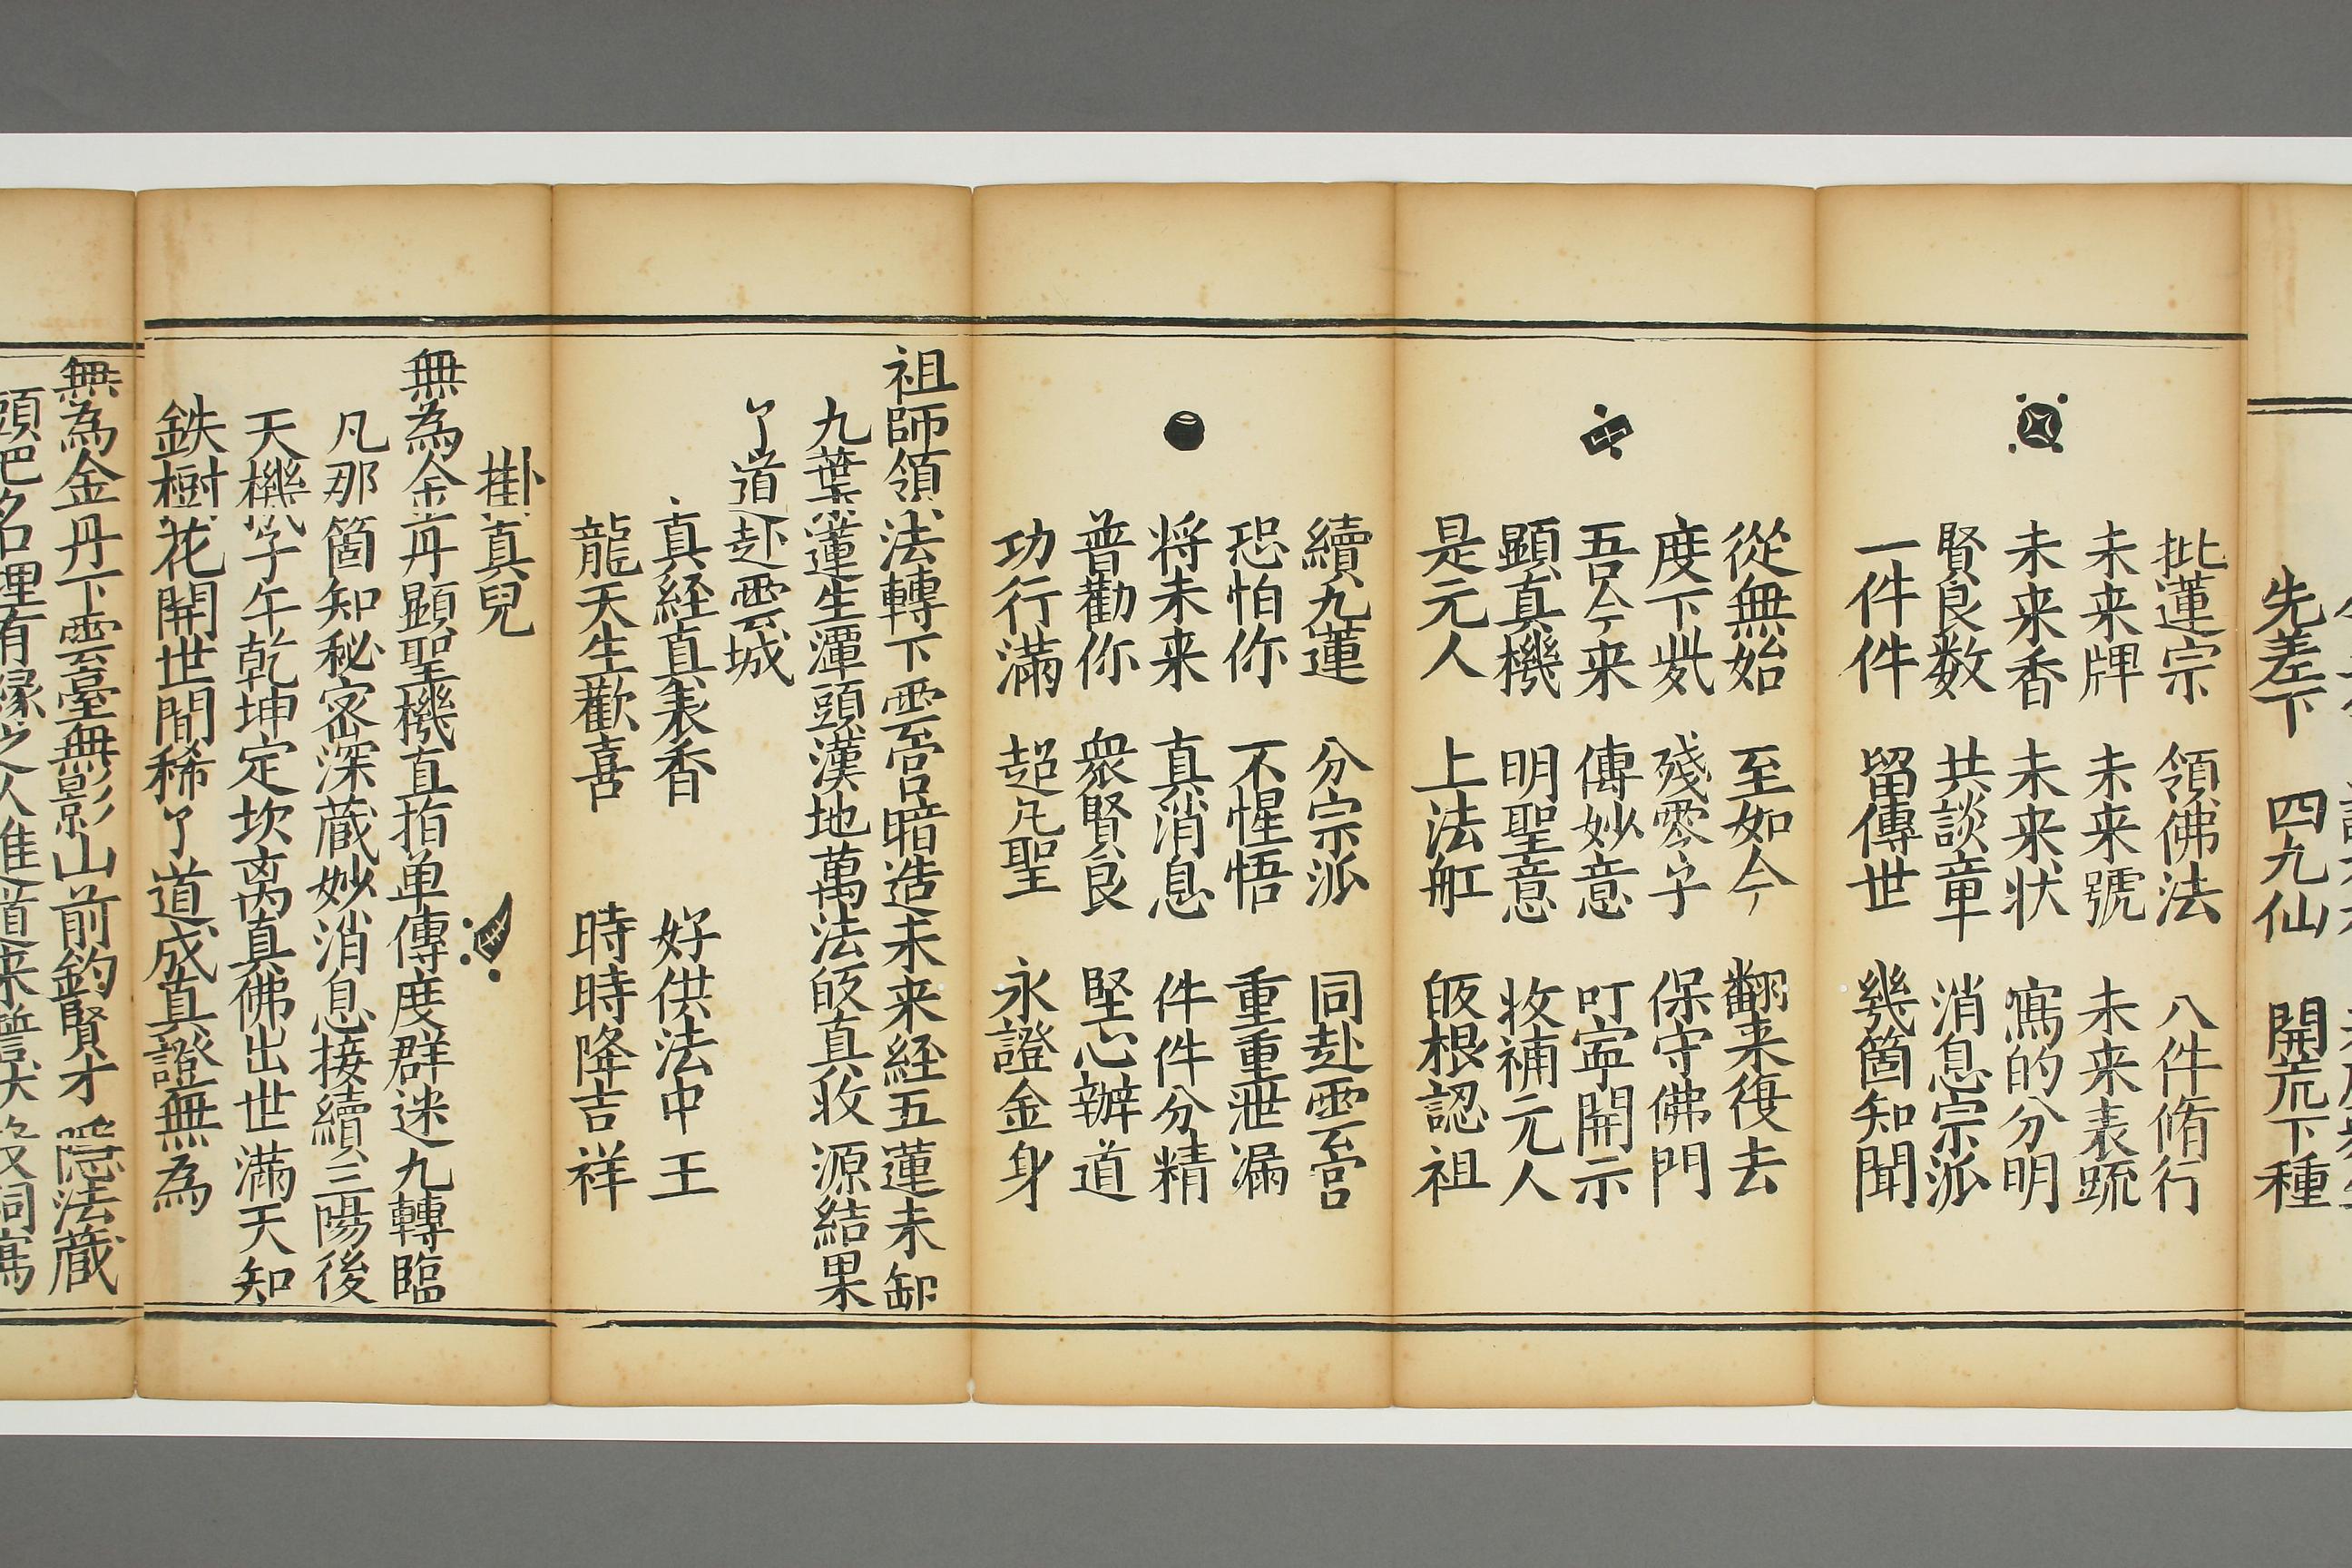 先差下 四九仙 開荒下種
批蓮宗 領佛法 八件脩行
未来牌 未来號 未来表䟽
未来香 未来状 寫的分明
賢良数 共談章 消息宗派
一件件 留傳世 幾箇知聞
從無始 至如今 翻来復去
度下㱔 殘零字 保守佛門
吾今来 傳妙意 叮寧開示
顕真機 明聖意 收補元人
是元人 上法舡 皈根認祖
續九蓮 分宗派 同赴雲宮
恐怕你 不惺悟 重重泄漏
将未来 真消息 件件分精
普勸你 衆賢良 堅心辦道
功行滿 超凡聖 永證金身
祖師領法轉下雲宮暗造未来経五蓮未卸
九葉蓮生潭頭漢地萬法皈真收源結果
了道赴雲城
真経真表香 好供法中王
龍天生歡喜 時時降吉祥
掛真兒
無為金丹顕聖機直指单傳度群迷九轉臨
凡那箇知秘密深蔵妙消息接續三陽後
天機子午乾坤定坎离真佛出世滿天知
鉄樹花開世間稀了道成真證無為
無為金丹下雲臺無影山前釣賢才隠法蔵